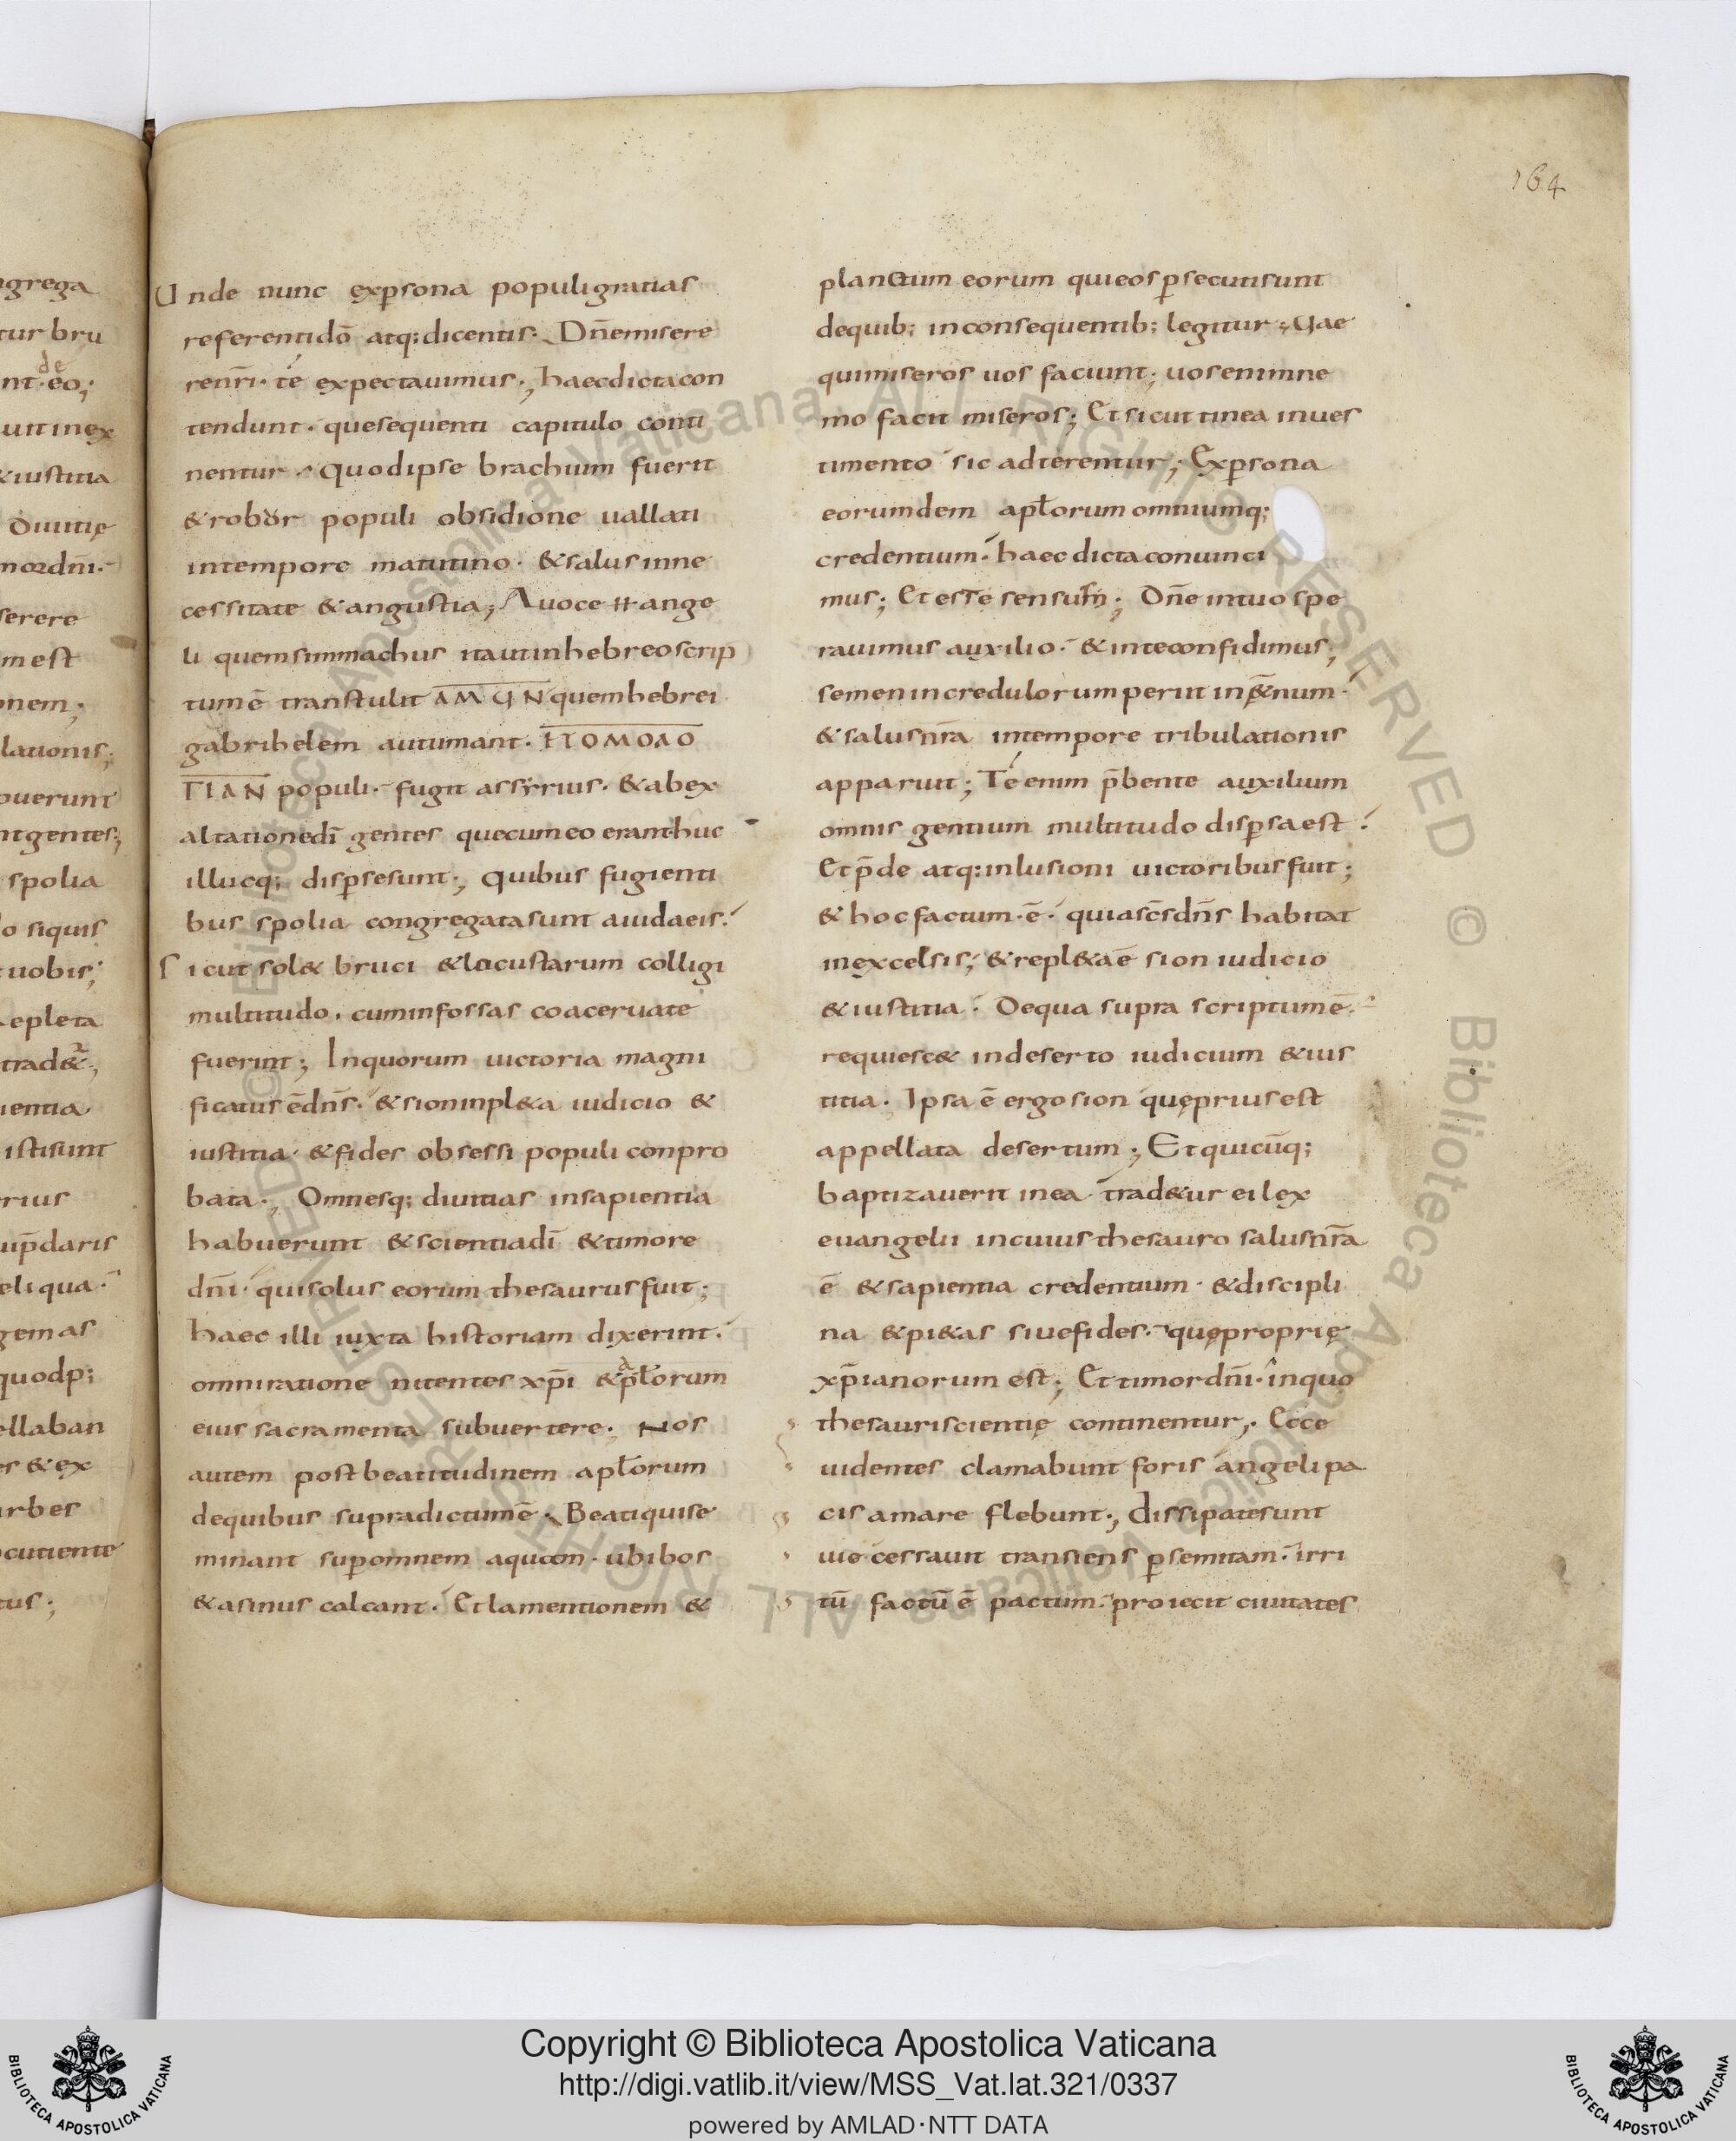 164
ngrega
tur bru
de
nt·eo;
uit inex
& iustitia
diuitię
mordn̄i·
serere
m est
onem;
lationis;
puerunt
nt gentes;
spolia
lo siquis
uobis;
epleta
trad&ur;
ientia
istisunt
rius
up̄daris
eliqua·
gemas
quodp;
ellaban
er & ex
urbes
cutiente
tus;
Unde nunc exp̱sona populi gratias
referenti dō atq; dicentis· Dn̄e misere
re nr̄i· té expectauimus·; haec dicta con
tendunt· que sequenti capitulo conti
nentur· Quod ipse brachium fuerit
& robor populi obsidione uallati
in tempore matutino· & salus inne
cessitate & angustia; A uoce H ange
li quem simmachus ita ut in hebreo scrip
tum ē transtulit AMUN quem hebrei
gabrihelem autumant· ΠΟΜΟΛΟ
ΓΙΑΝ populi· fugit assyrius· & ab ex
altatione dī gentes que cum eo erant huc
illucq; disp̱se sunt·, Quibus fugienti
bus spolia congregata sunt a iudaeis·
Sicut sol& bruci & locustarum colligi
multitudo, cum in fossas coaceruate
fuerint; In quorum uictoria magni
ficatus ē dn̄s· & sion inpl&a iudicio &
iustitia· & fides obsessi populi conpro
bata·, Omnesq; diuitias in sapientia
habuerunt & scientia dī & timore
dn̄i· qui solus eorum thesaurus fuit;
haec illi iuxta historiam dixerint·
a
omni ratione nitentes xp̄i & pl̄orum
eius sacramenta subuertere·, Nos
autem post beatitudinem apl̄orum
de quibus supra dictum ē· Beati qui se
minant sup̱ omnem aquam· ubi bos
& asinus calcant· Et lamentionem &
planctum eorum qui eos p̱secuti sunt
de quib; in consequentib; legitur· Uae
qui miseros uos faciunt; uos enim ne
mo facit miseros; Et sicut tinea in ues
timento sic adterentur; Exp̱sona
eorumdem apl̄orum omniumq;
credentium· haec dicta conuinci
mus; Et esse sensum̄; Dn̄e in tuo spe
rauimus auxilio· & in te confidimus;
semen incredulorum periit in &̄num·
& salus nr̄a in tempore tribulationis
apparuit; Té enim p̄bente auxilium
omnis gentium multitudo disp̱sa est·
Et p̄de atq; inlusioni uictoribus fuit;
& hoc factum·ē· quia sc̄s dn̄s habitat
in excelsis; & repl&a ē sion iudicio
& iustitia· De qua supra scriptum ē·
requiesc& in deserto iudicium & ius
titia· Ipsa ē ergo sion quę prius est
appellata desertum; Et quicūq;
baptizauerit in ea trad&ur ei lex
euangelii in cuius thesauro salus nr̄a
ē & sapientia credentium· & discipli
na & pi&as siue fides· quę proprię
xp̄ianorum est; Et timor dn̄i· in quo
thesauri scientię continentur,· Ecce
uidentes clamabunt foris angeli pa
cis amare flebunt·, dissipate sunt
uie cessauit transiens p̱ semitam· irri
tū factū ē pactum· proiecit ciuitates
Copyright © Biblioteca Apostolica Vaticana
http://digi.vatlib.it/view/MSS_Vat.lat.321/0337
powered by AMLAD·NTT DATA
BIBLIOTECA APOSTOLICA VATICANA
BIBLIOTECA APOSTOLICA VATICANA
© Biblioteca Apostolica Vaticana ALL RIGHTS RESERVED © Biblioteca Apostolica Vaticana ALL RIGHTS RESERVED